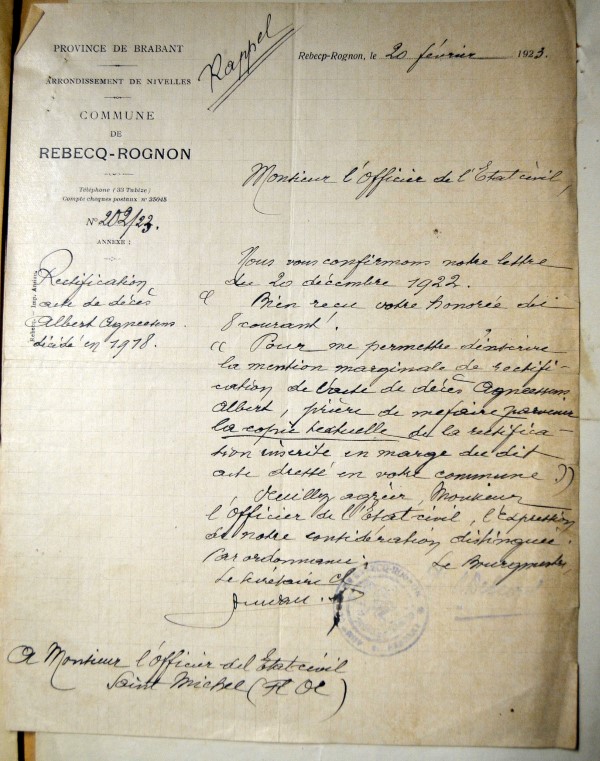 PROVINCE DE BRABANT
ARRONDISSEMENT DE NIVELLES
COMMUNE
DE
REBECQ-ROGNON
Téléphone (33 Tubize)
Compte chèques postaux nº 35048
Nº 202/23.
ANNEXE :
Rectification
acte de décès
Albert Agneessens
décédé en 1918.
Rappel
Rebecq-Rognon, le 20 février 1923.
Monsieur l'Officier de l'Etat civil,
Nous vous confirmons notre lettre
du 20 décembre 1922.
Bien reçu votre honorée du
8 courant.
(( Pour me permettre d'inscrire
la mention marginale de rectifi-
cation de l'acte de décès Agneessens
Albert, prière de me faire parvenir
la copie textuelle de la rectifica-
tion inscrite en marge du dit
acte dressé en votre commune ))
Veuillez agréer, Monsieur
l'Officier de l'Etat civil, l'expression
de notre considération distinguée.
Par ordonnance :
Le Secrétaire
Le Bourgmestre,
A Monsieur l'Officier de l'Etat civil
Saint Michel (Fl Oc)